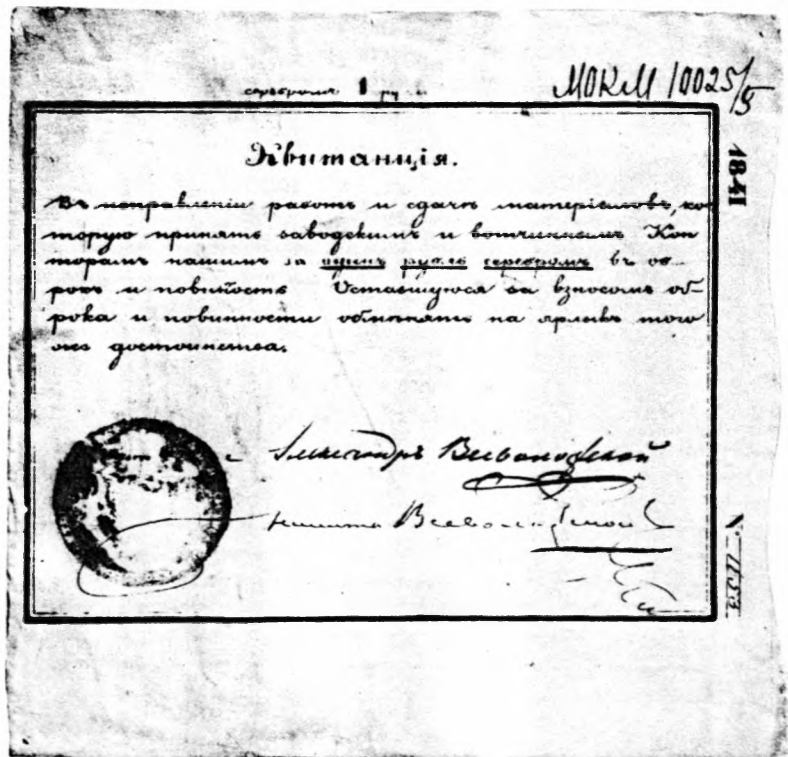 серебромъ 1 ру
МОКМ 10025/5
Квитанція.
Въ исправленіи работъ и сдачѣ матеріаловъ, ко
торую принять заводскимъ и вотчиннымъ Кон
торамъ нашимъ за одинъ рубль серебромъ въ об
рокъ и повинность Оставшуюся за взносомъ об
рока и повинности обмѣнять на ярлыкъ того
же достоинства.
Александръ Всеволожской
Никита Всеволожской
1841